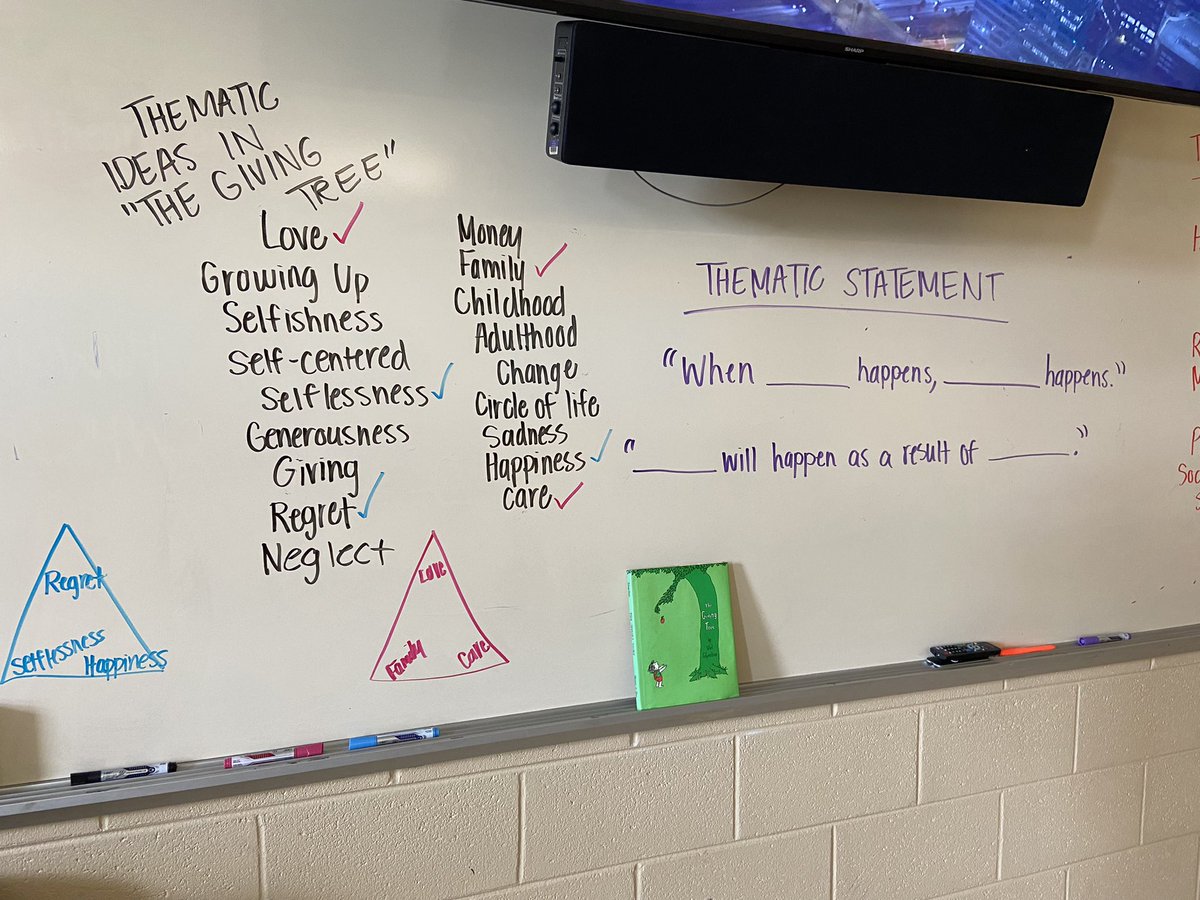 SHARP
THEMATIC
IDEAS IN
"THE GIVING
TREE"
Love ✓
Growing Up
Selfishness
Self-centered
Selflessness ✓
Generousness
Giving
Regret ✓
Neglect
Money
Family ✓
Childhood
Adulthood
Change
Circle of life
Sadness
Happiness ✓
Care ✓
THEMATIC STATEMENT
"When ______ happens, ______ happens."
"______ will happen as a result of ______."
Regret
Selflessness
Happiness
Love
Family
Care
The
Giving
Tree